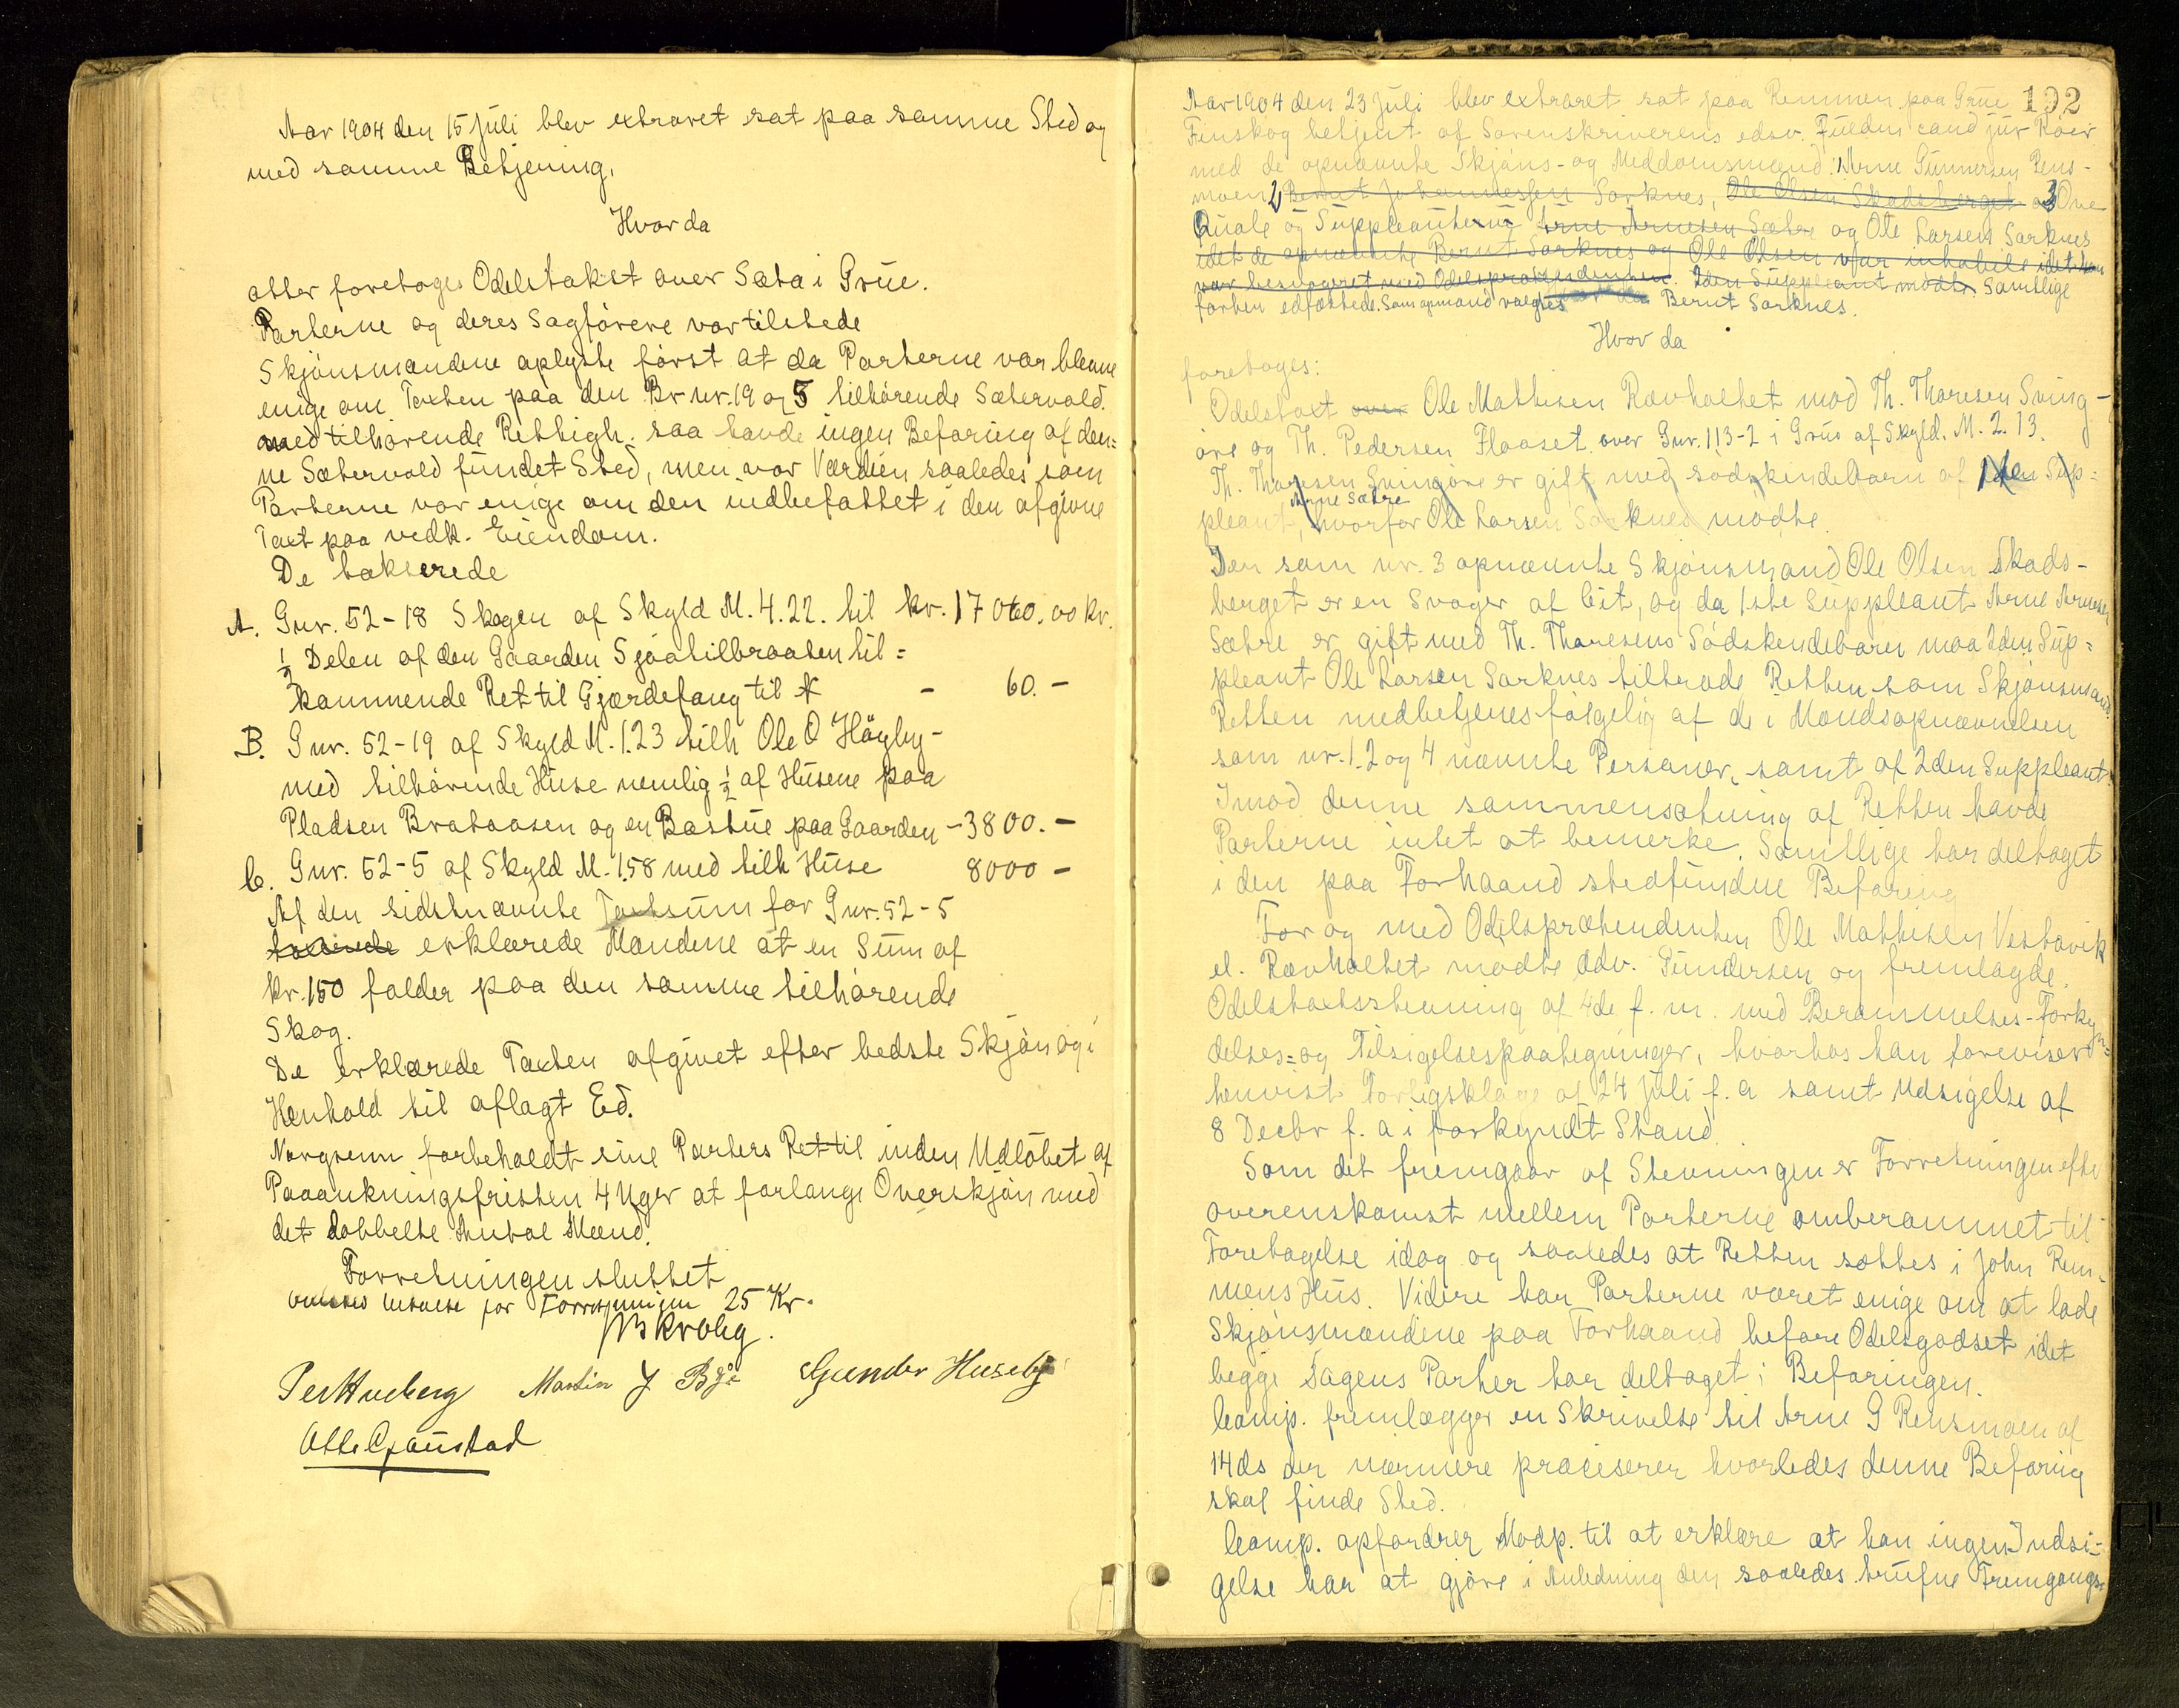 Aar 1904 den 15 Juli blev extraret sat paa samme Sted og
med samme Betjening.
Hvor da
atter foretoges Odelstakst over Sæta i Grue.
Parterne og deres Sagførere var tilstede
Skjønsmændene oplyste først at da Parterne var blevne
enige om Taxten paa den Br nr. 19 og 5 tilhørende Sætervold
med tilhørende Rettigh. saa havde ingen Befaring af den=
ne Sætervold fundet Sted, men var Værdien saaledes som
Parterne var enige om den indbefattet i den afgivne
Taxt paa vedk. Eiendom.
De takserede
A. Gnr. 52-18 Skogen af Skyld M. 4.22. til kr. 17000.00 kr.
1/2 Delen af den Gaarden Sjøatilbraaten til=
kommende Ret til Gjærdefang til - 60. -
B. Gnr. 52-19 af Skyld M. 1.23 tilh Ole O Høgby-
med tilhørende Huse nemlig 1/2 af Husene paa
Pladsen Brataasen og en Bastue paa Gaarden - 3800. -
C. Gnr. 52-5 af Skyld M. 1.58 med tilh Huse 8000 -
Af den sidstnævnte Taxtsum for Gnr. 52-5
taxerede erklærede Mændene at en Sum af
kr. 150 falder paa den samme tilhørende
Skog.
De erklærede Taxten afgivet efter bedste Skjøn og i
Henhold til aflagt Ed.
Norgrenn forbeholdt sine Parters Ret til inden Udløbet af
Paaankningsfristen 4 Uger at forlange Overskjøn med
det dobbelte Antal Mænd.
Forretningen sluttet
betalte for Forretningen 25 Kr.
Krohg.
Per Hueberg Martin J Bye Gunder Huseby
Otto Grønstad
192
Aar 1904 den 23 Juli blev extraret sat paa Remmen paa Grue
Finskog betjent af Sorenskriverens edsv. Fuldm. cand jur Koer
med de opnævnte Skjøns- og Meddomsmænd: 1 Arne Gunnersen Rens-
moen 2 Bernt Johannessen Sorknes, Ole Olsen Skadsberget og 3 Ove
Quale og Suppleanterne Arne Arnesen Sætre og Ole Larsen Sorknes
idet de opnævnte Bernt Sorknes og Ole Olsen var inhabile idet han
var besvogret med Odelsprætendenten. 2den Suppleant mødte. Samtlige
forhen edfæstede. Som opmand valgtes Bernt Sorknes.
Hvor da
foretoges:
Odelstaxt over Ole Mathisen Rævholtet mod Th. Thoresen Sving-
øre og Th. Pedersen Flaaset over Gnr. 113-2 i Grue af Skyld. M. 2.13.
Th. Thoresen Svingøre er gift med sødskindebarn af 1ste Sup=
Arne Sætre
pleant, hvorfor Ole Larsen Sorknes mødte.
Den som nr. 3 opnævnte Skjønsmand Ole Olsen Skads-
berget er en Svoger af Cit, og da 1ste Suppleant Arne Arnesen
Sætre er gift med Th. Thoresens Sødskendebarn maa 2den Sup=
pleant Ole Larsen Sorknes tiltræde Retten som Skjønsmand.
Retten medbetjenes følgelig af de i Mandsopnævnelsen
som nr. 1, 2 og 4 nævnte Personer, samt af 2den Suppleant.
Imod denne sammensætning af Retten havde
Parterne intet at bemerke. Samtlige har deltaget
i den paa Forhaand stedfundne Befaring
For og med Odelsprætendenten Ole Mathisen Vestavik
el. Rævholtet mødte adv. Gundersen og fremlagde
Odelstaxtsstevning af 4de f. m. med Berammelses-Forkyn=
delses= og Tilsigelsespaategninger, hvorhos han foreviser
henvist Forligsklage af 24 Juli f. a samt Udsigelse af
8 Decbr f. a i forkyndt Stand
Som det fremgaar af Stevningen er Forretningen efter
overenskomst mellem Parterne omberammet til
Foretagelse idag og saaledes at Retten sættes i John Rem-
mens Hus. Videre har Parterne været enige om at lade
Skjønsmændene paa Forhaand befare Odelsgodset idet
begge Sagens Parter har deltaget i Befaringen.
Comp. fremlægger en Skrivelse til Arne G Rensmoen af
14ds der nærmere præciserer hvorledes denne Befaring
skal finde Sted.
Comp. opfordrer Modp. til at erklære at han ingen Indsi-
gelse har at gjøre i Anledning den saaledes trufne Fremgangs-